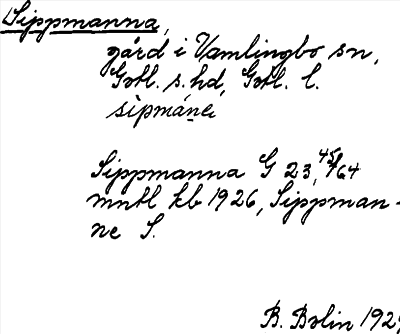 Sippmanna,
gård i Vamlingbo sn,
Gotl. s. hd, Gotl. l.
sìpmánei
Sippmanna G 23, 45/64
mntl kb 1926, Sippman-
ne S.
B. Bolin 192